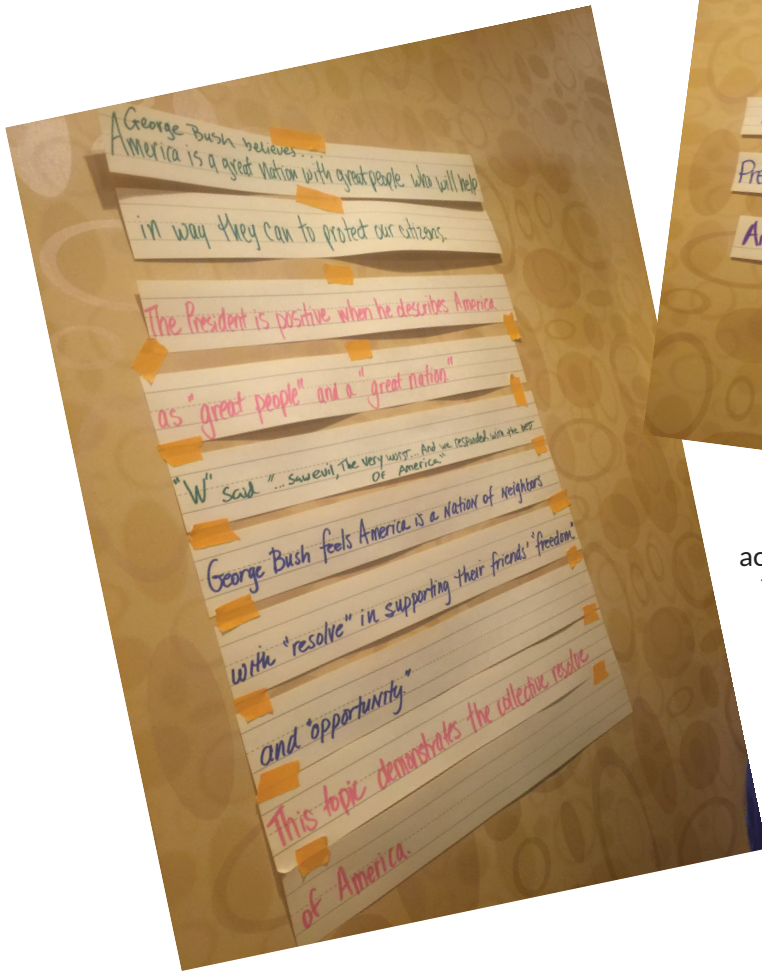 George Bush believes...
America is a great nation with great people who will help
in way they can to protect our citizens.
The President is positive when he describes America
as "great people" and a "great nation"
"W" said "...saw evil, The very worst... And we responded with the best
Of America"
George Bush feels America is a Nation of Neighbors
with "resolve" in supporting their friends' "freedom"
and "opportunity."
This topic demonstrates the collective resolve
of America.